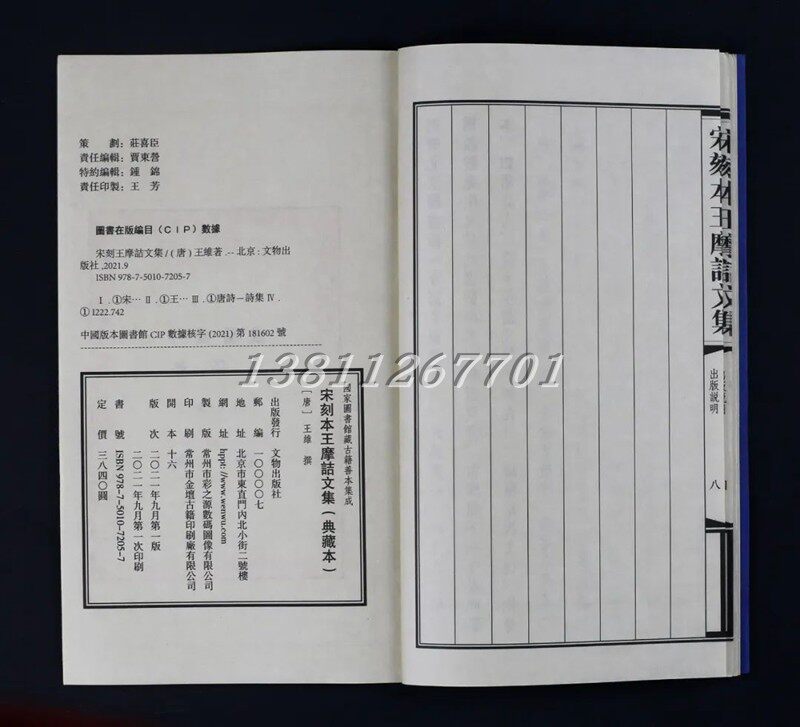 策　劃：莊喜臣
責任編輯：賈東營
特約編輯：鍾　錦
責任印製：王　芳
圖書在版編目（CIP）數據
宋刻王摩詰文集/（唐）王維著.-- 北京：文物出
版社,2021.9
ISBN 978-7-5010-7205-7
Ⅰ.①宋… Ⅱ.①王… Ⅲ.①唐詩－詩集 Ⅳ.
①I222.742
中國版本圖書館 CIP 數據核字 (2021) 第 181602 號
13811267701
國家圖書館藏古籍善本集成
宋刻本王摩詰文集（典藏本）
［唐］王維　撰
出版發行　文物出版社
郵　編　一〇〇〇〇七
地　址　北京市東直門內北小街二號樓
網　址　hppt://www.wenwu.com
製　版　常州市彩之源數碼圖像有限公司
印　刷　常州市金壇古籍印刷廠有限公司
開　本　十六
版　次　二〇二一年九月第一版
二〇二一年九月第一次印刷
書　號　ISBN 978-7-5010-7205-7
定　價　三八四〇圓
宋刻本王摩詰文集
出版説明
八